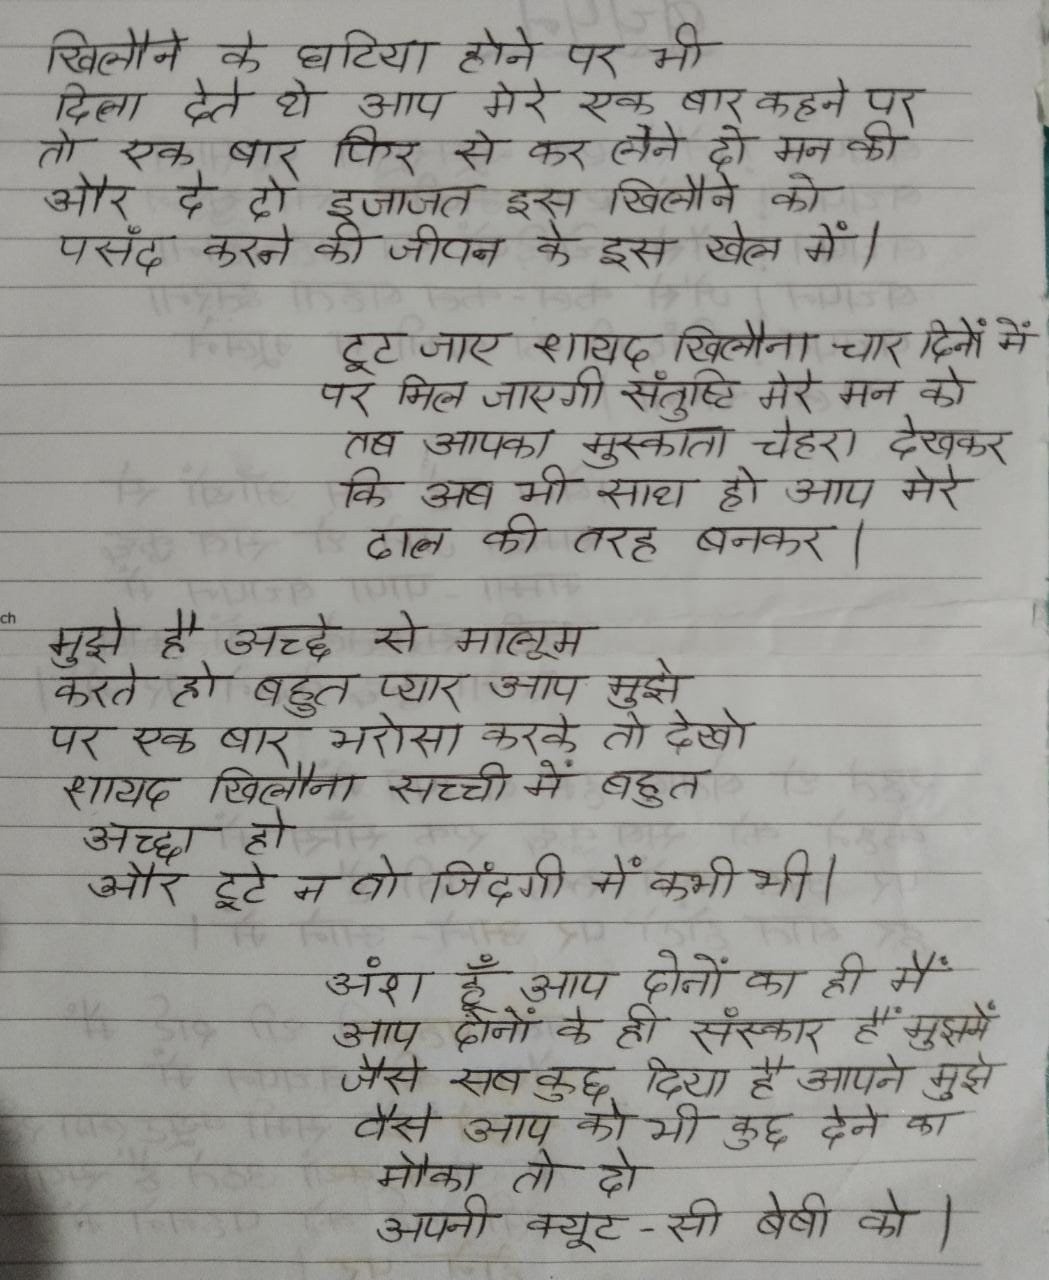 खिलौने के घटिया होने पर भी
दिला देते थे आप मेरे एक बार कहने पर
तो एक बार फिर से कर लेने दो मन की
और दे दो इजाजत इस खिलौने को
पसंद करने की जीवन के इस खेल में।
टूट जाए शायद खिलौना चार दिनों में
पर मिल जाएगी संतुष्टि मेरे मन को
तब आपका मुस्काता चेहरा देखकर
कि अब भी साथ हो आप मेरे
ढाल की तरह बनकर।
ch
मुझे है अच्छे से मालूम
करते हो बहुत प्यार आप मुझे
पर एक बार भरोसा करके तो देखो
शायद खिलौना सच्ची में बहुत
अच्छा हो
और टूटे न वो जिंदगी में कभी भी।
अंश हूँ आप दोनों का ही मैं
आप दोनों के ही संस्कार हैं मुझमें
जैसे सब कुछ दिया है आपने मुझे
वैसे आप को भी कुछ देने का
मौका तो दो
अपनी क्यूट-सी बेबी को।